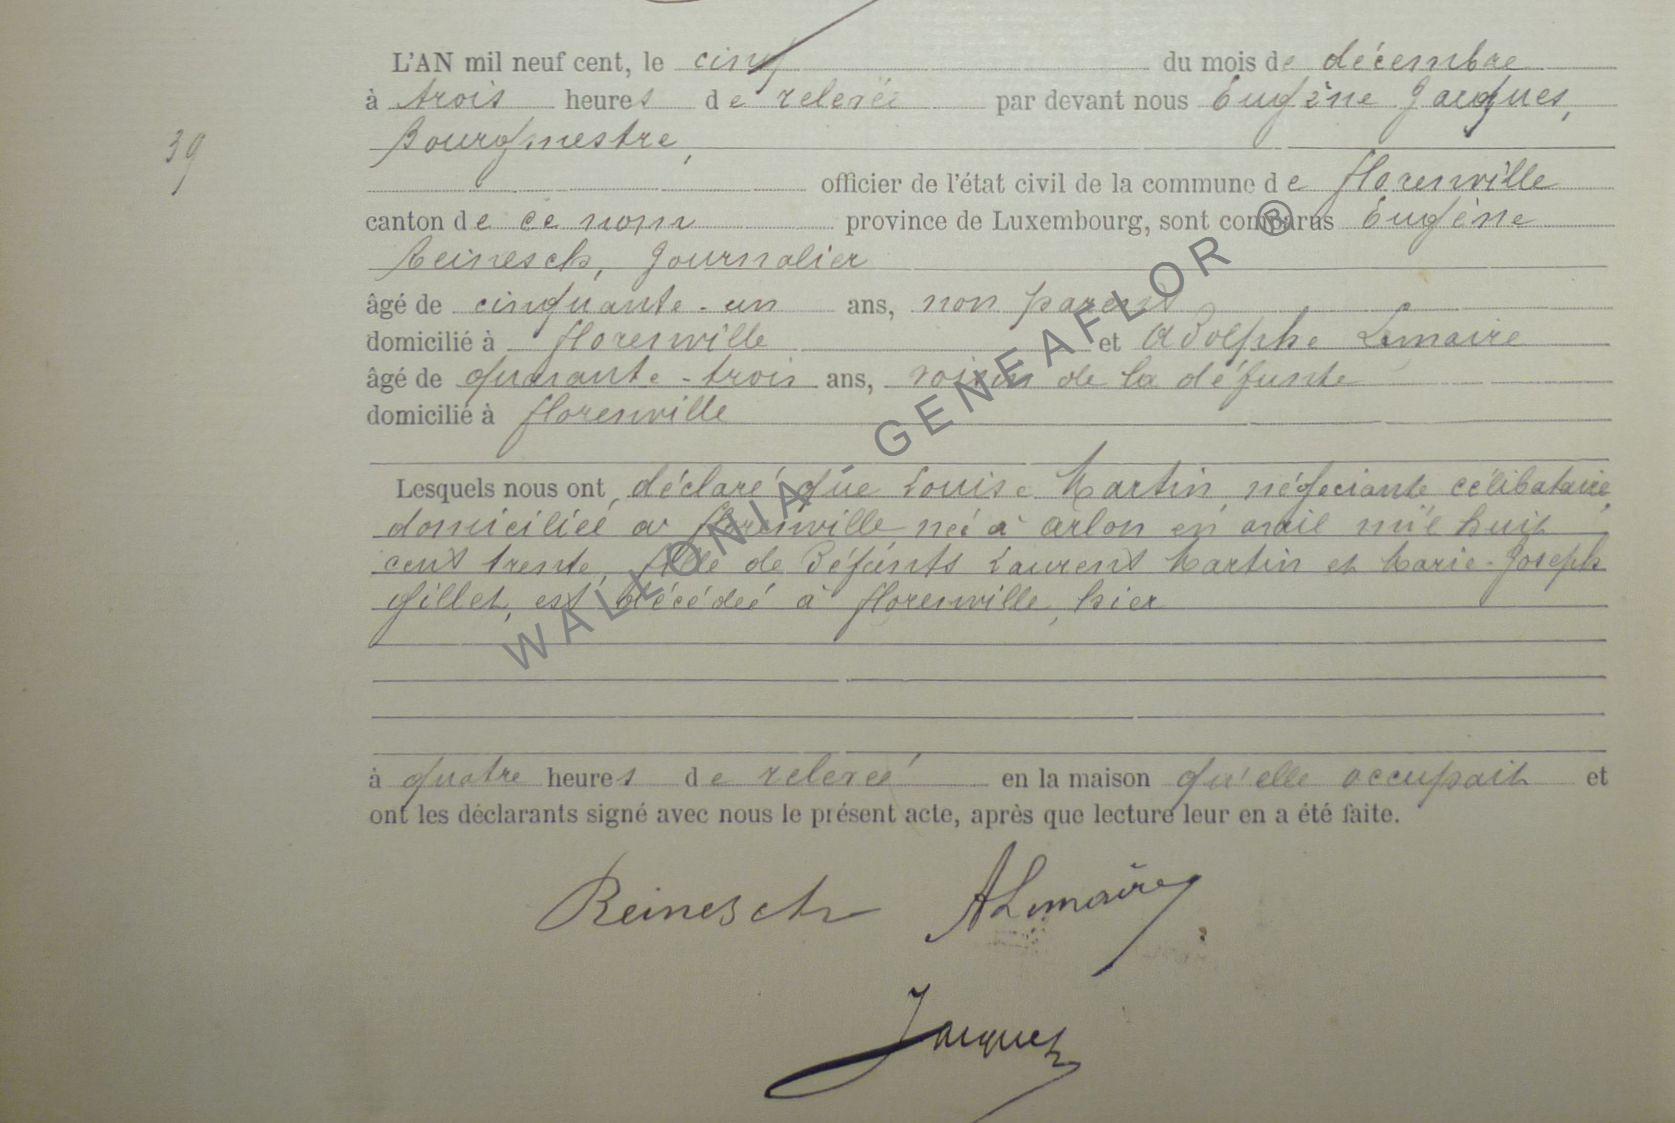 L'AN mil neuf cent, le cinq du mois de décembre
à trois heures de relevée par devant nous Eugène Jacques,
Bourgmestre,
39
officier de l'état civil de la commune de Florenville
canton de ce nom province de Luxembourg, sont comparus Eugène
Reinesch, Journalier
âgé de cinquante-un ans, non parent
domicilié à Florenville et Adolphe Lemaire
âgé de quarante-trois ans, voisin de la défunte
domicilié à Florenville
Lesquels nous ont déclaré que Louise Martin négociante célibataire,
domiciliée à Florenville née à Arlon en avril mil huit
cent trente, fille de Défunts Laurent Martin et Marie-Joseph
Gillet, est décédée à Florenville, hier
à quatre heures de relevée en la maison qu'elle occupait et
ont les déclarants signé avec nous le présent acte, après que lecture leur en a été faite.
Reinesch ALemaire
Jacques
WALLONIA GENEAFLOR ®